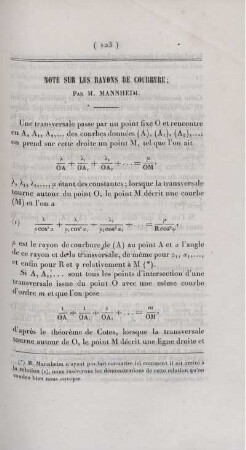 ( 123 )
NOTE SUR LES RAYONS DE COURBURE;
PAR M. MANNHEIM.
Une transversale passe par un point fixe O et rencontre
en A, A₁, A₂,... des courbes données (A), (A₁), (A₂),...,
on prend sur cette droite un point M, tel que l'on ait
λ/OA + λ₁/OA₁ + λ₂/OA₂ + ... = μ/OM,
λ, λ₁, λ₂,..., μ étant des constantes; lorsque la transversale
tourne autour du point O, le point M décrit une courbe
(M) et l'on a
(1) λ/ρ cos³ α + λ₁/ρ₁ cos³ α₁ + λ₂/ρ₂ cos³ α₂ + ... = μ/R cos³ γ,
ρ est le rayon de courbure de (A) au point A et α l'angle
de ce rayon et de la transversale, de même pour ρ₁, α₁,...,
et enfin pour R et γ relativement à M (*).
Si A, A₁,... sont tous les points d'intersection d'une
transversale issue du point O avec une même courbe
d'ordre m et que l'on pose
1/OA + 1/OA₁ + 1/OA₂ + ... = m/OM,
d'après le théorème de Cotes, lorsque la transversale
tourne autour de O, le point M décrit une ligne droite et
(*) M. Mannheim n'ayant pas fait connaître ici comment il est arrivé à
la relation (1), nous insérerons les démonstrations de cette relation qu'on
voudra bien nous envoyer.